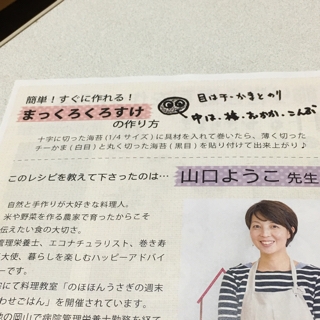 簡単！すぐに作れる！
まっくろくろすけ
の作り方
目はチーかまとのり
中は、梅・おかか・こんぶ
十字に切った海苔（1/4サイズ）に具材を入れて巻いたら、薄く切った
チーかま（白目）と丸く切った海苔（黒目）を貼り付けて出来上がり♪
このレシピを教えて下さったのは…
山口ようこ 先生
自然と手作りが大好きな料理人。
米や野菜を作る農家で育ったからこそ
伝えたい食の大切さ。
管理栄養士、エコナチュラリスト、巻き寿
大使、暮らしを楽しむハッピーアドバイ
ーです。
宅にて料理教室「のほほんうさぎの週末
わせごはん」を開催されています。
の岡山で病院管理栄養士勤務を経て